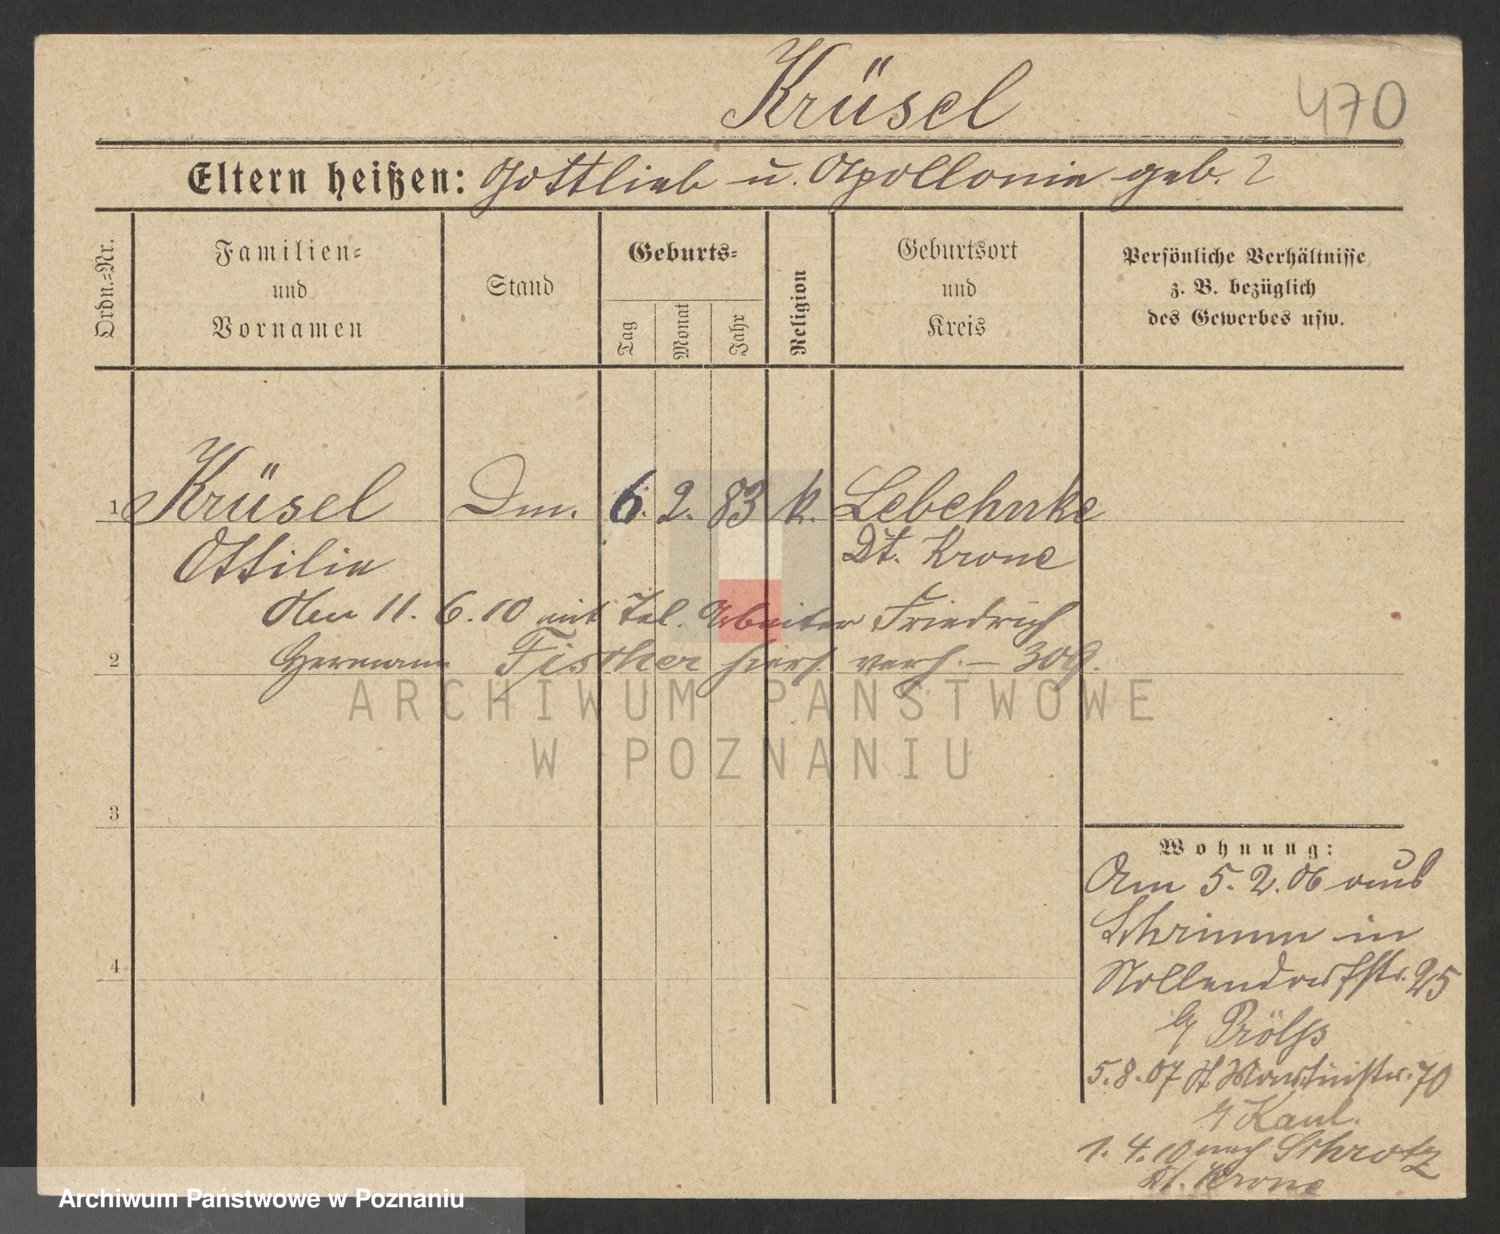 Krüsel
470
Eltern heißen: Gottlieb u. Apollonie geb. ?
Ordn.=Nr.
Familien=
und
Vornamen
Stand
Geburts=
Tag
Monat
Jahr
Religion
Geburtsort
und
Kreis
Persönliche Verhältnisse
z. B. bezüglich
des Gewerbes usw.
1 Krüsel Dm. 6. 2. 83 k. Lebehnke
Ottilie Dt. Krone
Am 11. 6. 10 mit Tel. Arbeiter Friedrich
2 Hermann Fischer hier verh. – 309.
ARCHIWUM PAŃSTWOWE
W POZNANIU
3
4
Wohnung:
Am 5. 2. 06 aus
Schrimm in
Nollendorfstr. 25
b/ Prölss
5. 8. 07 St. Martinstr. 70
b/ Kaul.
1. 4. 10 nach Schrotz
Dt. Krone
Archiwum Państwowe w Poznaniu